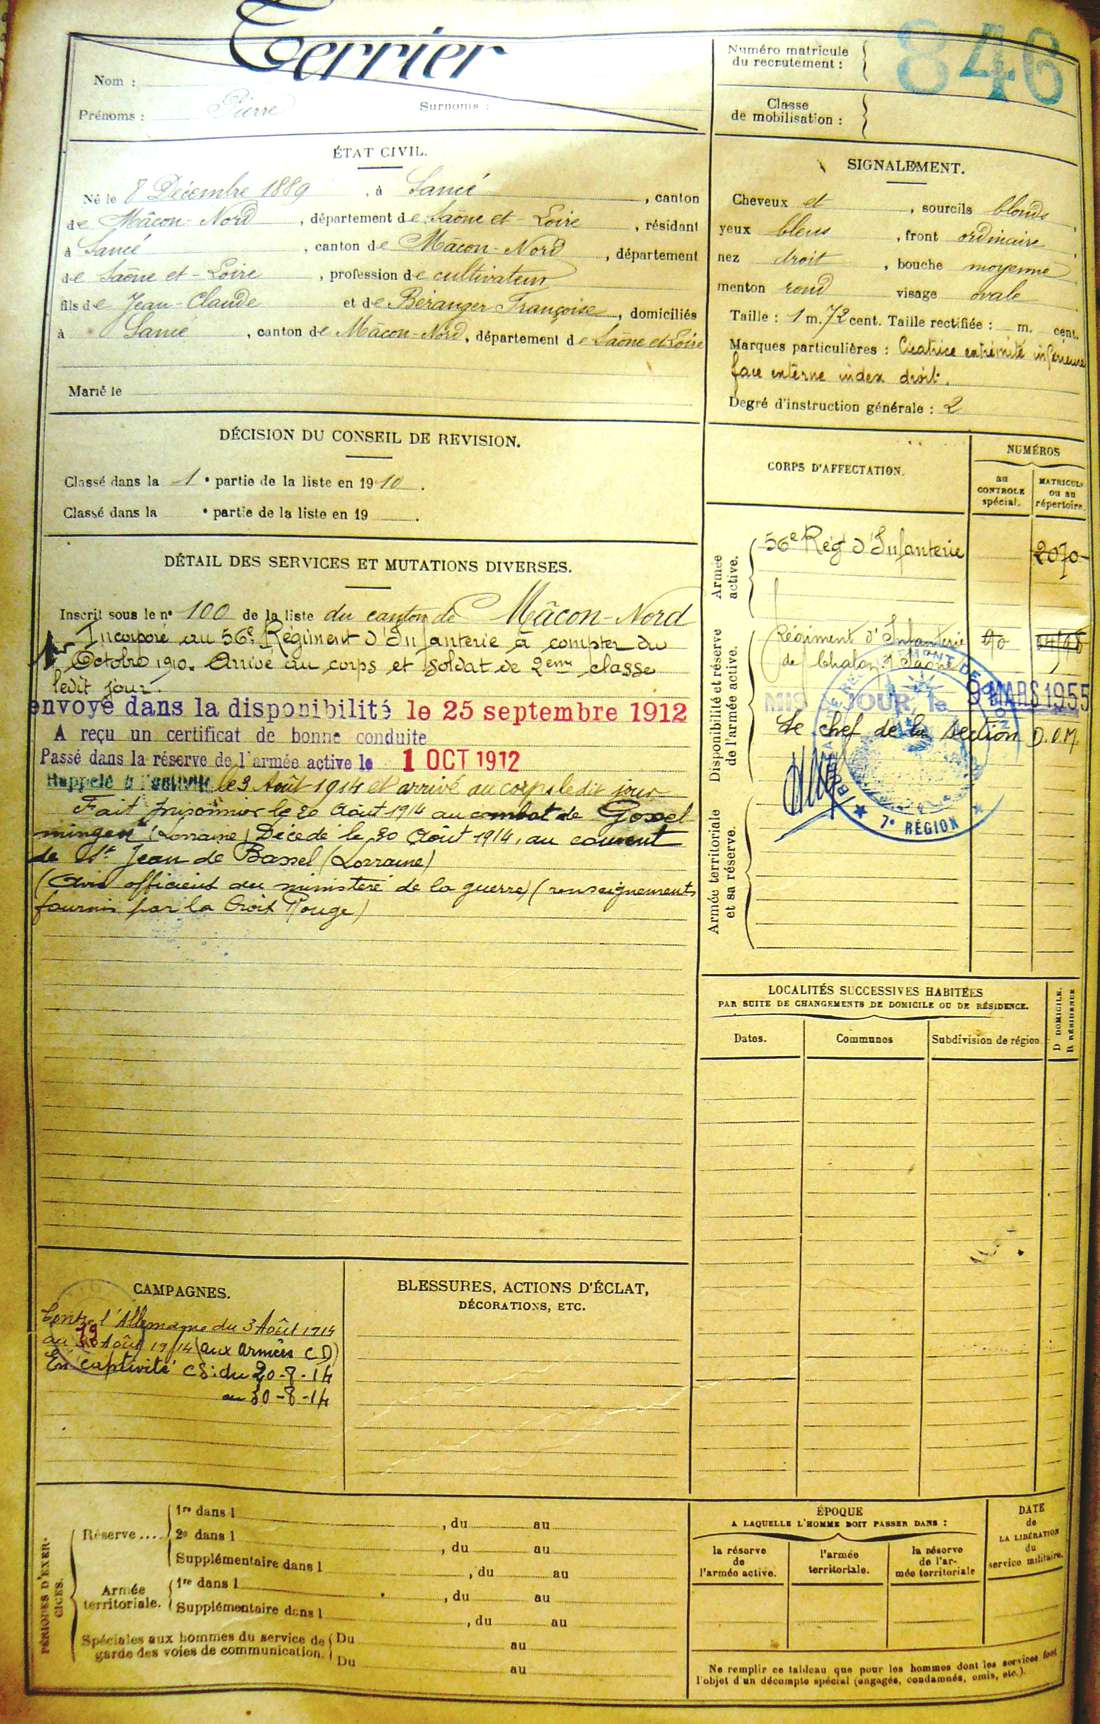 Terrier
Nom :
Prénoms : Pierre Surnoms :
Numéro matricule
du recrutement : 846
Classe
de mobilisation :
ÉTAT CIVIL.
Né le 8 Décembre 1889, à Sancé, canton
de Mâcon-Nord, département de Saône et-Loire, résidant
à Sancé, canton de Mâcon-Nord, département
de Saône et-Loire, profession de cultivateur
fils de Jean-Claude et de Béranger Françoise, domiciliés
à Sancé, canton de Mâcon-Nord, département de Saône et Loire
Marié le
SIGNALEMENT.
Cheveux et, sourcils blonds
yeux bleus, front ordinaire
nez droit, bouche moyenne
menton rond visage ovale
Taille : 1 m. 72 cent. Taille rectifiée : m. cent.
Marques particulières : Cicatrice extrémité inférieure
face externe index droit.
Degré d'instruction générale : 2
DÉCISION DU CONSEIL DE REVISION.
Classé dans la 1e partie de la liste en 1910.
Classé dans la e partie de la liste en 19 .
DÉTAIL DES SERVICES ET MUTATIONS DIVERSES.
Inscrit sous le n° 100 de la liste du canton de Mâcon-Nord
Incorporé au 56e Régiment d'Infanterie à compter du
Octobre 1910. Arrivé au corps et soldat de 2eme classe
ledit jour.
envoyé dans la disponibilité le 25 septembre 1912
A reçu un certificat de bonne conduite
Passé dans la réserve de l'armée active le 1 OCT 1912
Rappelé à l'activité le 3 Août 1914 et arrivé au corps le dit jour
Fait prisonnier le 20 Août 1914 au combat de Gossel
mingen (Lorraine) Décédé le 30 Août 1914, au couvent
de St Jean de Bassel (Lorraine)
(Avis officiel du ministère de la guerre) (renseignements
fournis par la Croix Rouge)
CORPS D'AFFECTATION.
NUMÉROS
au
CONTROLE
spécial.
MATRICULE
ou au
répertoire.
Armée
active.
56e Rég d'Infanterie 2070
Disponibilité et réserve
de l'armée active.
Régiment d'Infanterie
de Chalon s/ Saône
MIS A JOUR, le 9 MARS 1955
Le chef de la section D.O.M.
7e RÉGION
Armée territoriale
et sa réserve.
LOCALITÉS SUCCESSIVES HABITÉES
PAR SUITE DE CHANGEMENTS DE DOMICILE OU DE RÉSIDENCE.
Dates.
Communes
Subdivision de région
D DOMICILE.
R RÉSIDENCE
CAMPAGNES.
Contre l'Allemagne du 3 Août 1914
au 19 Août 1914 (aux armées CD)
En captivité CS: du 20-8-14
au 30-8-14
BLESSURES, ACTIONS D'ÉCLAT,
DÉCORATIONS, ETC.
PÉRIODES D'EXER-
CICES.
Réserve....
1re dans l , du au
2e dans l , du au
Supplémentaire dans l , du au
Armée
territoriale.
1re dans l , du au
Supplémentaire dans l , du au
Spéciales aux hommes du service de
garde des voies de communication.
Du au
Du au
ÉPOQUE
A LAQUELLE L'HOMME DOIT PASSER DANS :
la réserve
de
l'armée active.
l'armée
territoriale.
la réserve
de l'ar-
mée territoriale
DATE
de
LA LIBÉRATION
du
service militaire.
Ne remplir ce tableau que pour les hommes dont les services font
l'objet d'un décompte spécial (engagés, condamnés, omis, etc.).